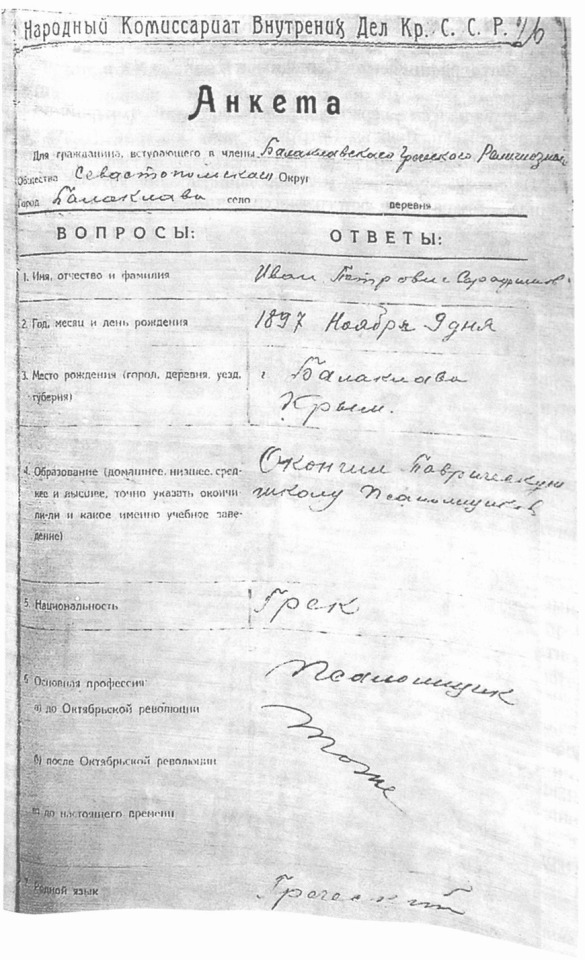 Народный Комиссариат Внутрених Дел Кр. С. С. Р. 76
Анкета
Для гражданина, вступающего в члены Балаклавского Греческого Религиозный
Общества Севастопольского Округ
Город Балаклава село деревня
ВОПРОСЫ: ОТВЕТЫ:
1. Имя, отчество и фамилия Иван Петрович
2. Год, месяц и день рождения 1897 Ноября 9 дня
3. Место рождения (город, деревня, уезд, г. Балаклава
губерния) Крым.
4. Образование (домашнее, низшее, сред- Окончил Таврическую
нее и высшее, точно указать окончи- школу Псаломщиков
ли-ли и какое именно учебное заве-
дение)
5. Национальность Грек
6 Основная профессия: Псаломщик
а) до Октябрьской революции тоже
б) после Октябрьской революции
в) до настоящего времени
7 Родной язык Греческий